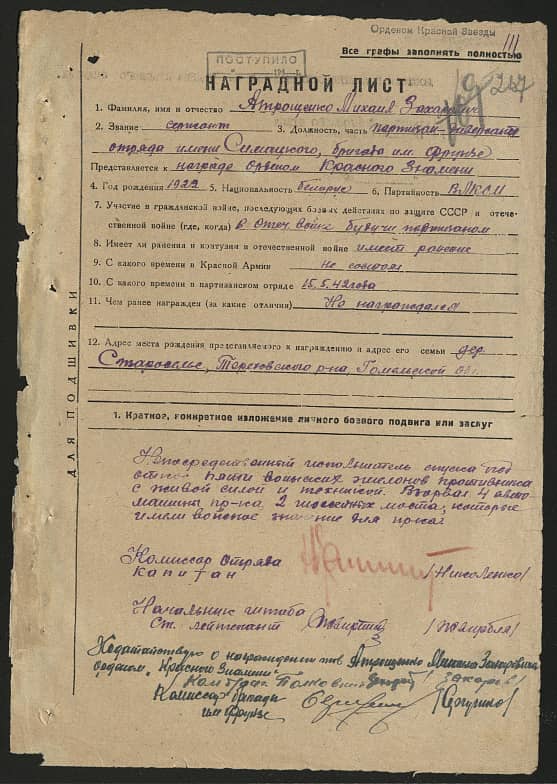 Орденом Красной Звезды
Все графы заполнять полностью
III
ПОСТУПИЛО
267
НАГРАДНОЙ ЛИСТ
1. Фамилия, имя и отчество Атрощенко Михаил Захарович
2. Звание сержант 3. Должность, часть партизан-диверсант
отряда имени Симацкого, бригада им. Фрунзе
Представляется к награде орденом Красного Знамени
4. Год рождения 1922 5. Национальность белорус 6. Партийность ВЛКСМ
7. Участие в гражданской войне, последующих боевых действиях по защите СССР и отече-
ственной войне (где, когда) в Отеч. войне будучи партизаном
8. Имеет ли ранения и контузии в отечественной войне имеет ранение
9. С какого времени в Красной Армии не состоял
10. С какого времени в партизанском отряде 15.5.42 года
11. Чем ранее награжден (за какие отличия) Не награждался
12. Адрес места рождения представляемого к награждению и адрес его семьи дер.
Староселье, Тереховского р-на, Гомельской обл.
ДЛЯ ПОДШИВКИ
1. Краткое, конкретное изложение личного боевого подвига или заслуг
Непосредственный исполнитель спуска под
откос пяти воинских эшелонов противника
с живой силой и техникой. Взорвал 4 авто
машины пр-ка, 2 моста, которые
имели войско значение для пр-ка
Комиссар Отряда
Капитан /Николенко/
Начальник штаба
Ст. лейтенант
Ходатайствую о награждении тов Атрощенко Михаила Захаровича
орденом „Красного Знамени"
Комбриг Полковник /Захаров/
Комиссар бригады
им Фрунзе